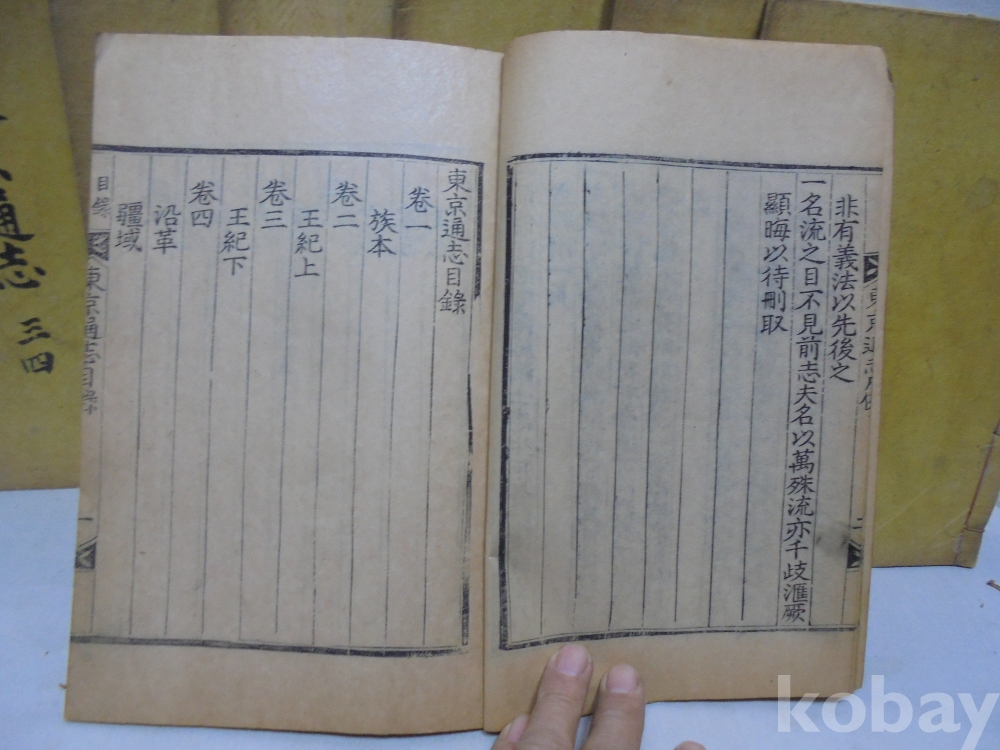 非有義法以先後之
一名流之目不見前志夫名以萬殊流亦千歧滙厥
顯晦以待刪取
東京通志目錄
卷一
族本
卷二
王紀上
卷三
王紀下
卷四
沿革
疆域
目錄
東京通志目錄
一
二
通志 三四
kobay